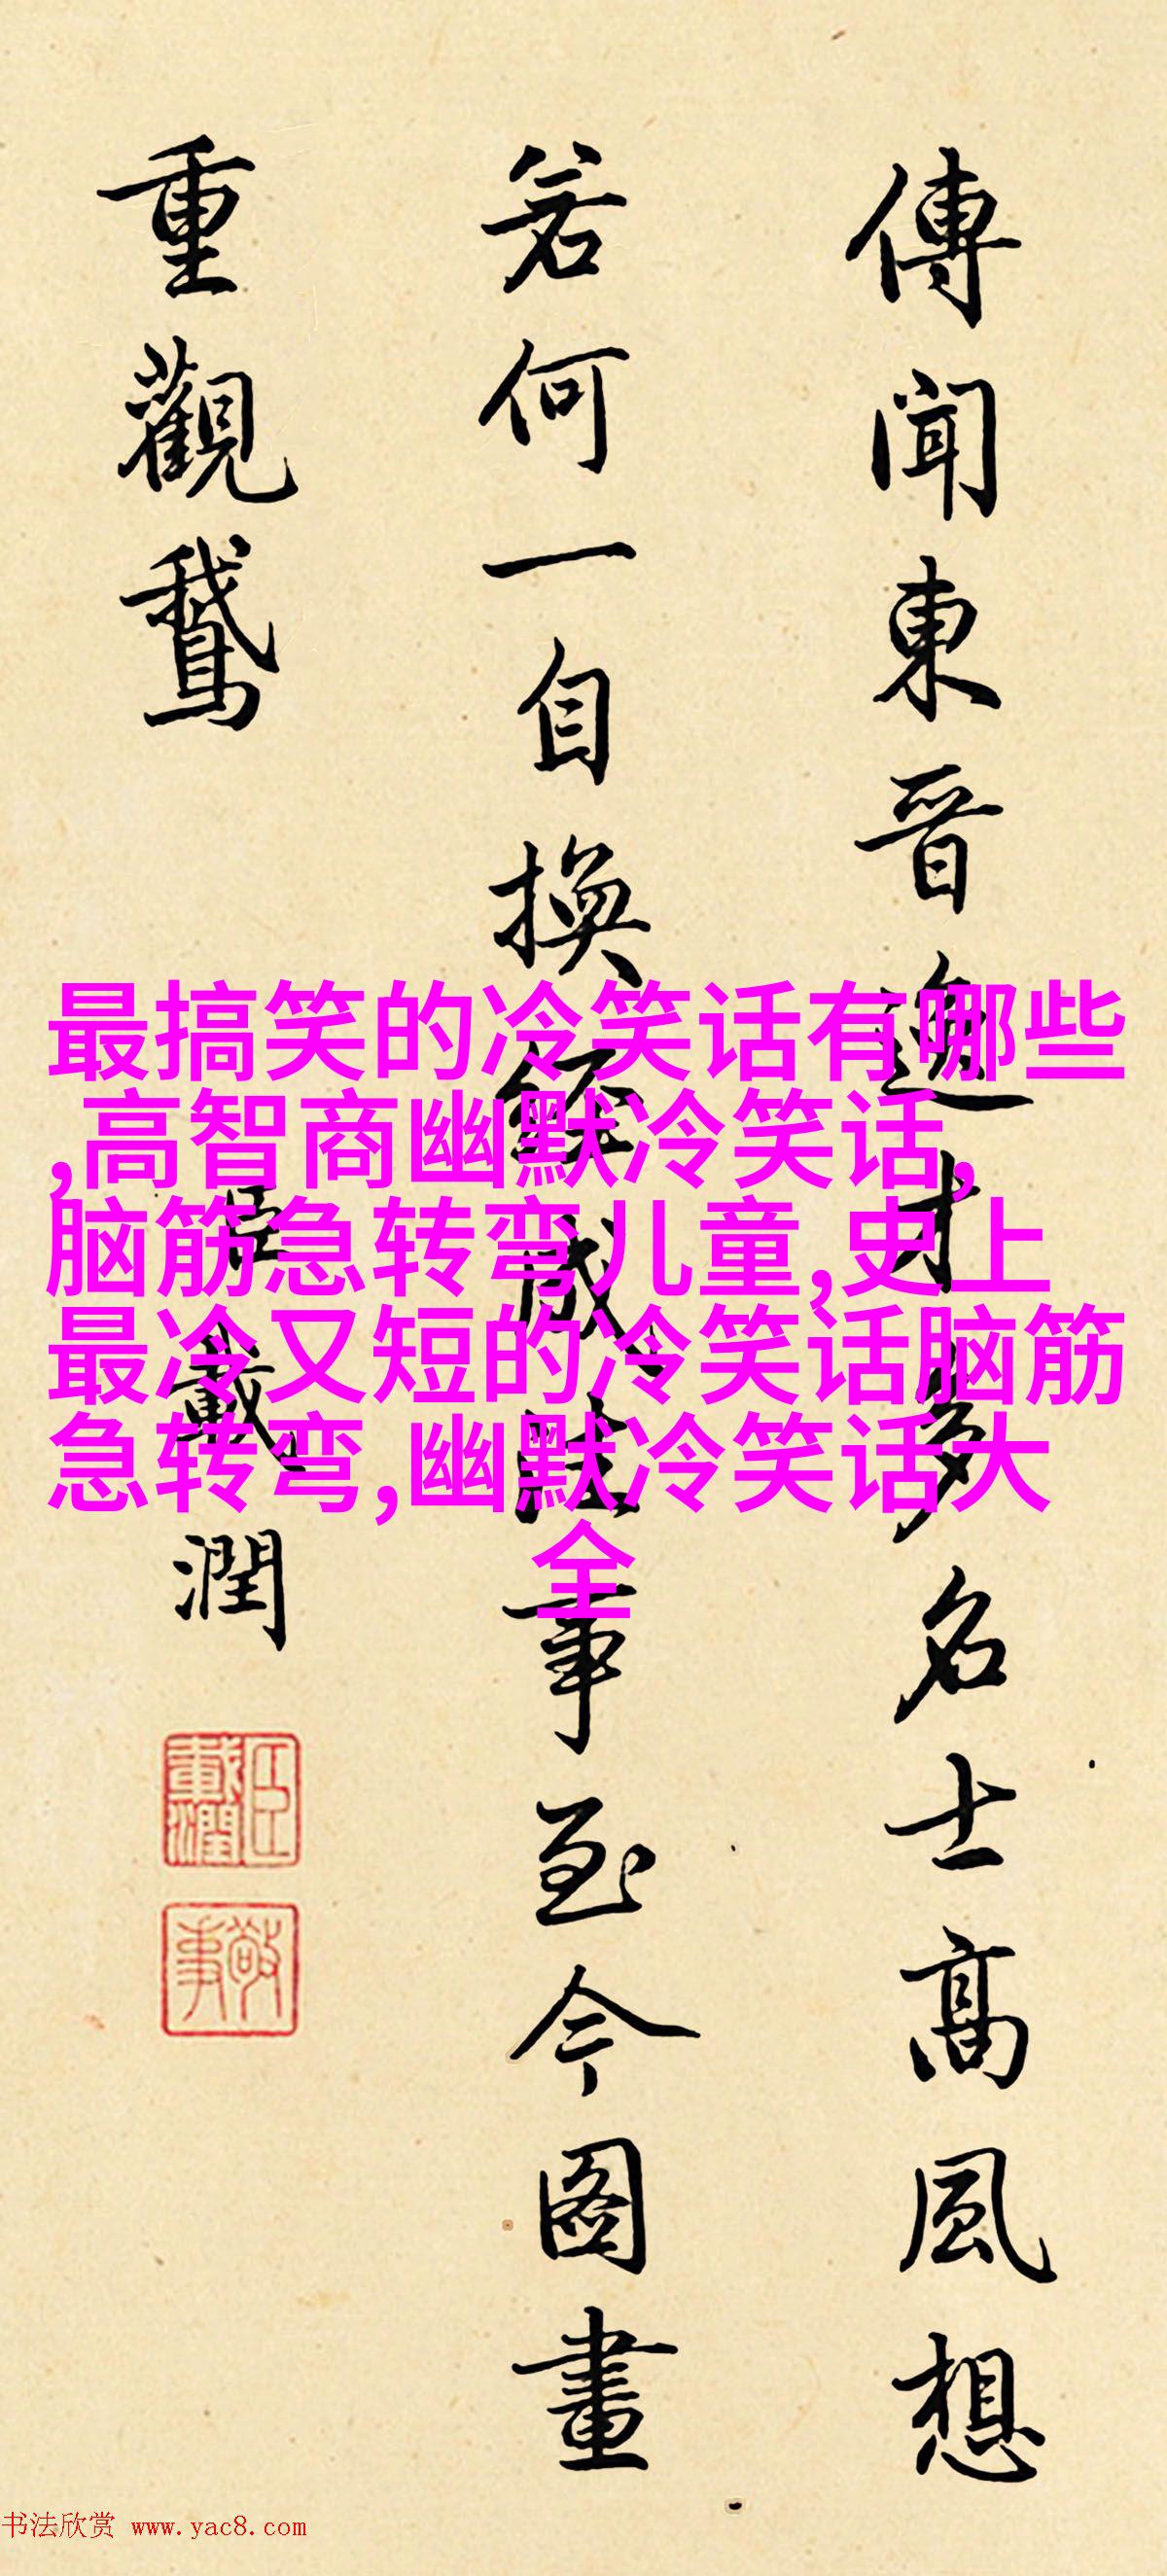 傳聞東晉逸才多名士高風想
若何一自換經成往事至今圖畫
重觀鵝
臣載潤
臣載潤
敬事
最搞笑的冷笑话有哪些
,高智商幽默冷笑话,
脑筋急转弯儿童,史上
最冷又短的冷笑话脑筋
急转弯,幽默冷笑话大
全
书法欣赏 www.yac8.com